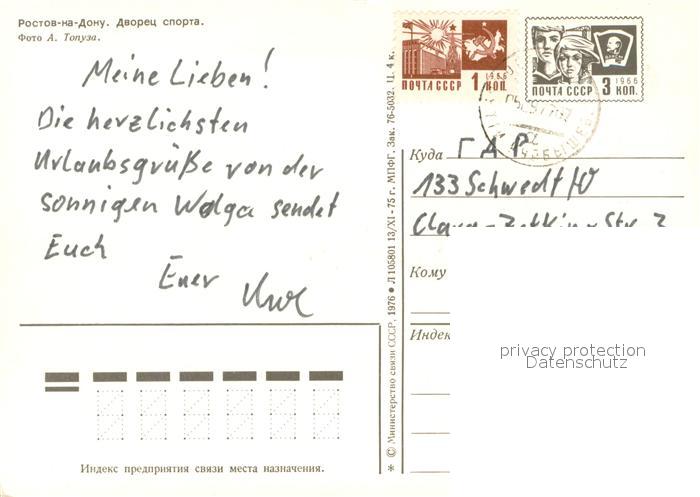 Ростов-на-Дону. Дворец спорта.
Фото А. Топуза.
Meine Lieben!
Die herzlichsten
Urlaubsgrüße von der
sonnigen Wolga sendet
Euch
Euer Uwe
Индекс предприятия связи места назначения.
* © Министерство связи СССР, 1976 ● Л 105801 13/XI-75 г. МПФГ, Зак. 76-5032. Ц. 4 к.
1966
ПОЧТА СССР 1 КОП.
1966
ПОЧТА СССР 3 КОП.
Куда ГДР
133 Schwedt/O
Clara-Zetkin-Str.
Кому
Индек
privacy protection
Datenschutz